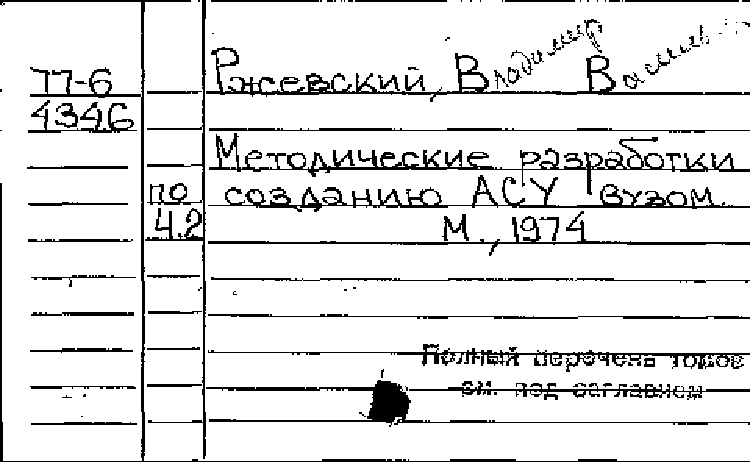 77-6
4346
Ржевский, Владимир
Методические разработки
по созданию АСУ вузом.
Ч.2
М., 1974
Полный перечень томов
см. под заглавием